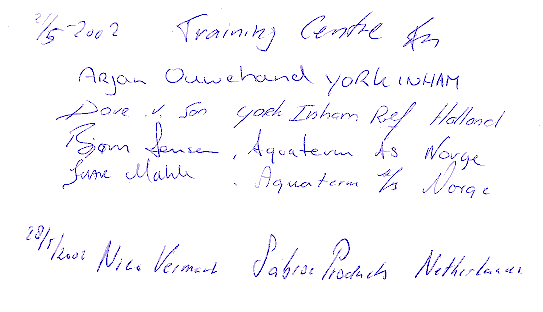 2/5-2002 Training Centre
Arjan Ouwehand YORK INHAM
Dove v. Son York Inham Ref Holland
Bjørn Jensen, Aquaterm AS Norge
Aquaterm A/S Norge
28/5/2002 Nico Vermaat Sabroe Products Netherlands